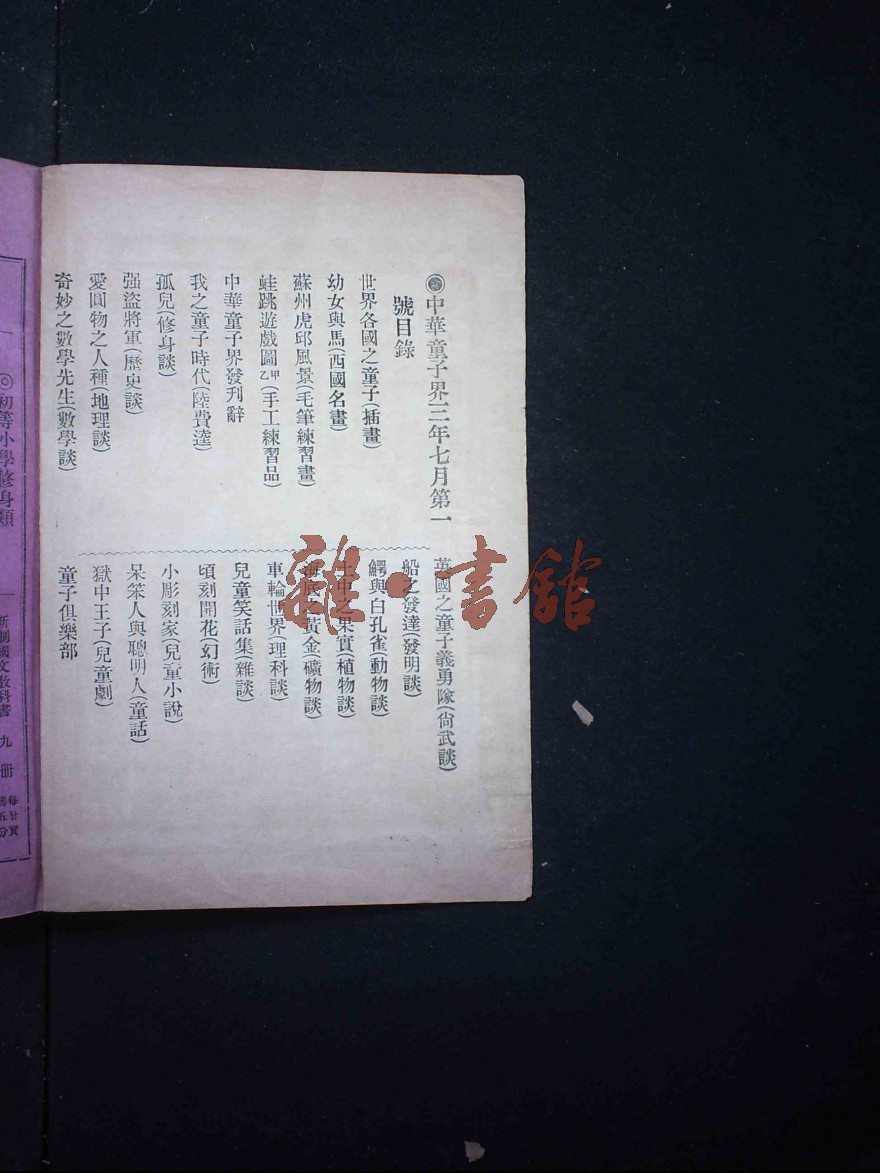 中華童子界三年七月第一
號目錄
世界各國之童子(插畫)
幼女與馬(西國名畫)
蘇州虎邱風景(毛筆練習畫)
蛙跳遊戲圖甲乙(手工練習品)
中華童子界發刊辭
我之童子時代(陸費逵)
孤兒(修身談)
强盜將軍(歷史談)
愛圓物之人種(地理談)
奇妙之數學先生(數學談)
英國之童子義勇隊(尙武談)
船之發達(發明談)
鰐與白孔雀(動物談)
土中之果實(植物談)
海底之黃金(礦物談)
車輪世界(理科談)
兒童笑話集(雜談)
頃刻開花(幻術)
小彫刻家(兒童小說)
呆笨人與聰明人(童話)
獄中王子(兒童劇)
童子俱樂部
雜·書館
◎初等小學修身類
新制國文敎科書 九 冊